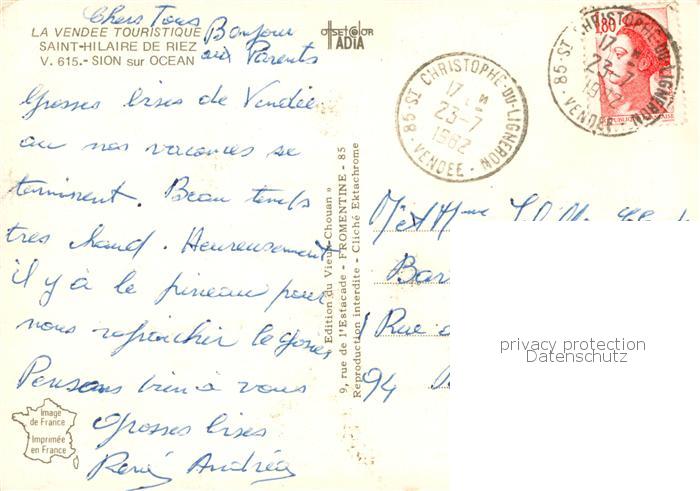 Chers Tous
Bonjour
aux Parents
LA VENDÉE TOURISTIQUE
SAINT-HILAIRE DE RIEZ
V. 615.- SION sur OCEAN
OFFSET COLOR
ADIA
85 - ST CHRISTOPHE-DU-LIGNERON
17 H
23-7
1982
VENDÉE
1,80
85 - ST CHRISTOPHE-DU-LIGNERON
17 H
23-7
1982
VENDÉE
Grosses bises de Vendée
ou nos vacances se
terminent. Beau temps
tres chaud. Heureusement
il y à le pineau pour
nous rafraichir le gosier
Pensons bien à vous
Grosses bises
René Andrée
Image
de France
Imprimée
en France
Edition du Vieux-Chouan »
9, rue de l'Estacade - FROMENTINE - 85
Reproduction interdite - Cliché Ektachrome
M et Mme
Bar
1 Rue
94
privacy protection
Datenschutz